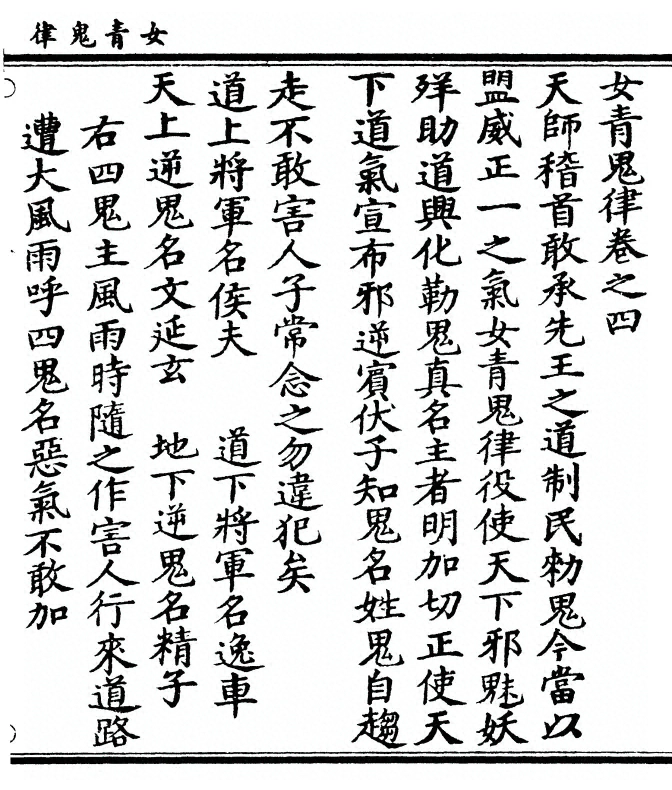 女青鬼律
女青鬼律卷之四
天師稽首敢承先王之道制民勑鬼今當以
盟威正一之氣女青鬼律役使天下邪魅妖
殃助道興化勒鬼真名主者明加切正使天
下道氣宣布邪逆賓伏子知鬼名姓鬼自趨
走不敢害人子常念之勿違犯矣
道上將軍名侯夫　道下將軍名逸車
天上逆鬼名文延玄　地下逆鬼名精子
右四鬼主風雨時隨之作害人行來道路
遭大風雨呼四鬼名惡氣不敢加